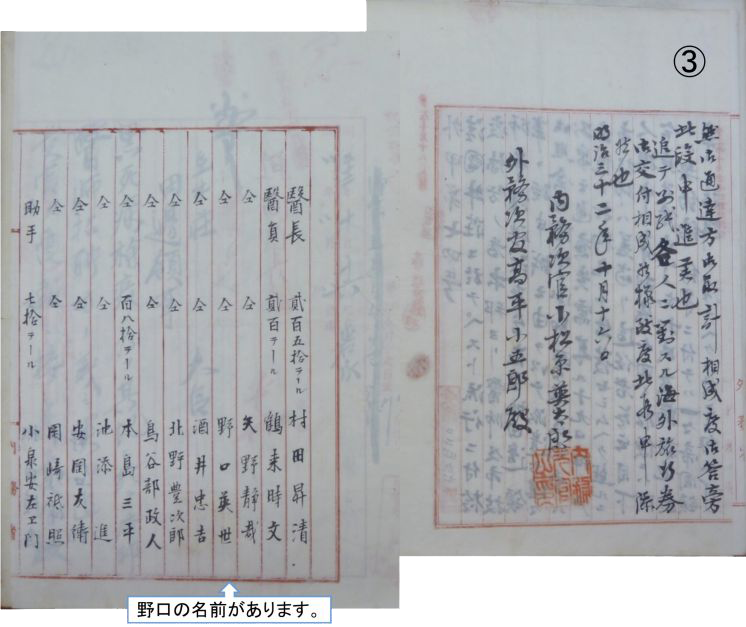 ③
御通達方御取計相成度御答旁
此段申進候也
追テ前記各人ニ対スル海外旅行券
御交付相成候様致度此旨申添
候也
明治三十二年十月十六日
内務次官小松原英太郎
外務次官高平小五郎殿
醫長 貳百五拾テール 村田昇清
醫員 貳百テール 鶴来時文
仝 仝 矢野静哉
仝 仝 野口英世
仝 仝 酒井忠吉
仝 仝 北野豊次郎
仝 仝 鳥谷部政人
仝 百八拾テール 本島三平
仝 仝 池添進
仝 仝 安田友
仝 仝 岡崎祗照
助手 七拾テール 小泉安左ヱ門
野口の名前があります。